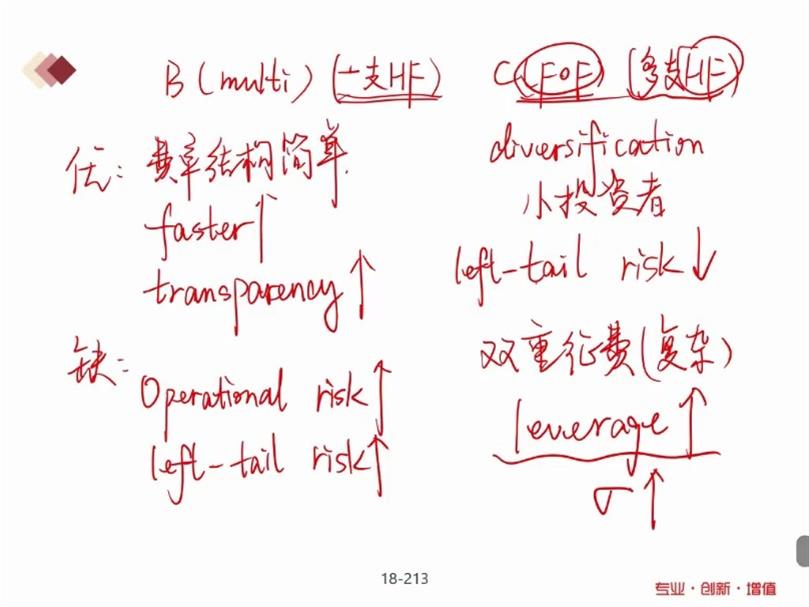 B (multi) (一支HF)
C (FOF) (多支HF)
优: 费率结构简单
faster↑
transparency↑
diversification
小投资者
left-tail risk↓
缺:
Operational risk↑
left-tail risk↑
双重征费(复杂)
leverage↑
σ↑
18-213
专业·创新·增值